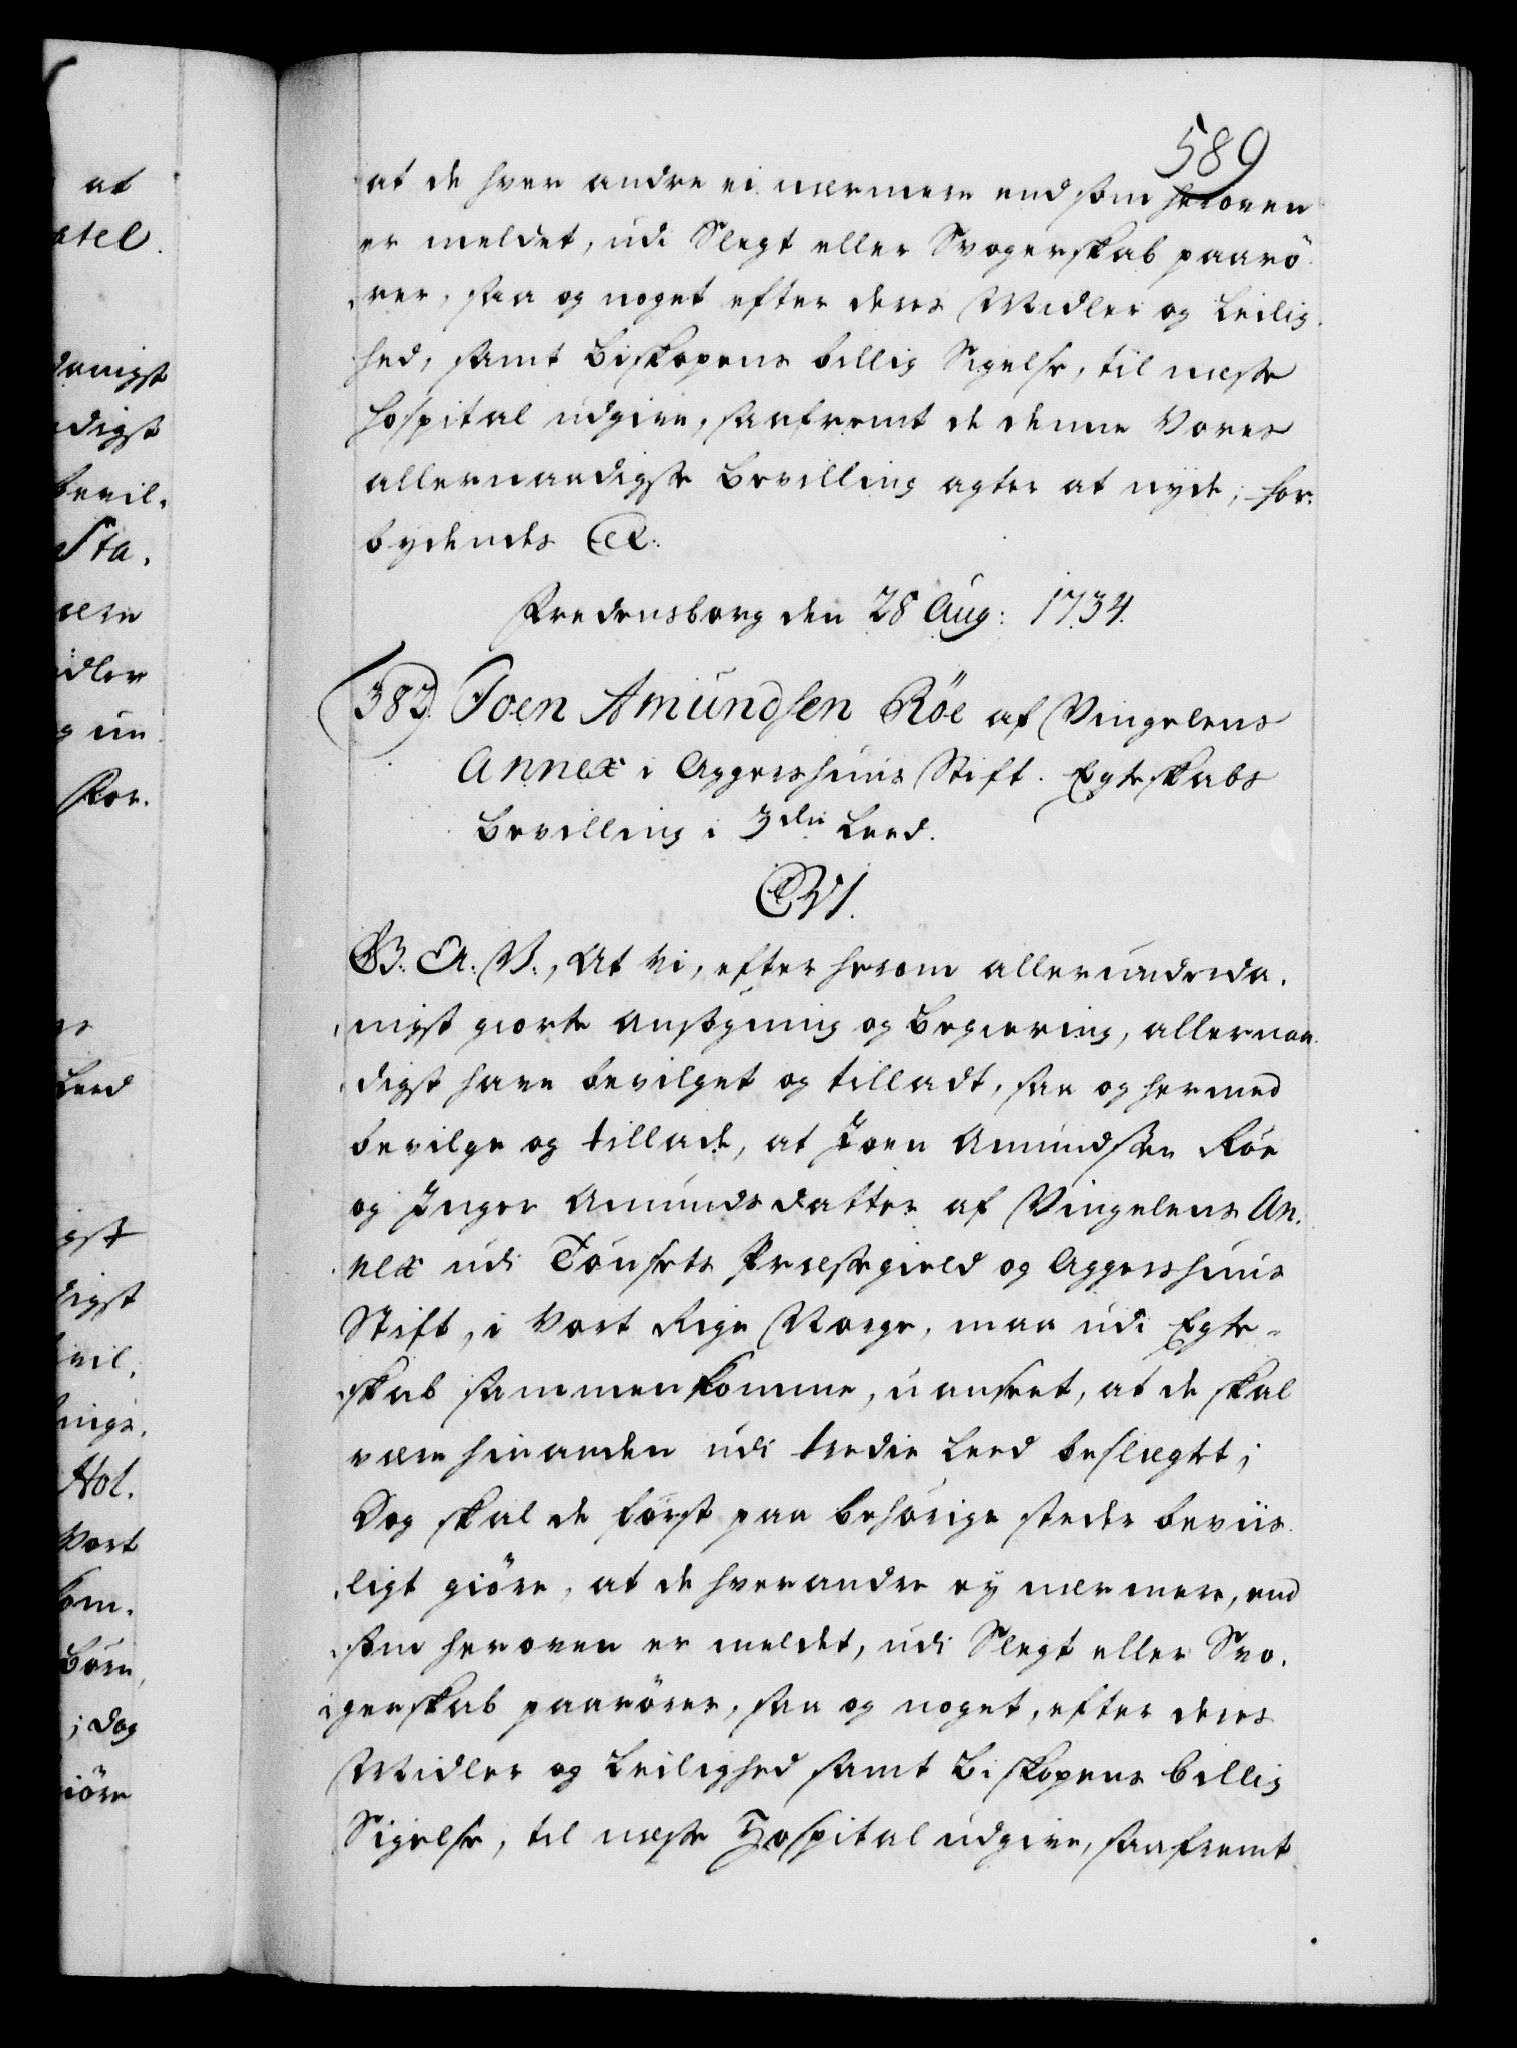 589
at de hver andre ei nærmere end som heroven
er meldet, udi Slegt eller Svogerskab paarö-
rer, saa og noget efter deres Midler og Leilig-
hed, samt Biskopens billig Sigelse, til neste
Hospital udgive, saafremt de denne Vores
allernaadigste Bevilling agter at nyde; For-
bydendes etc:
Fredensborg den 28 Aug: 1734.
383. Joen Amundsen Röe af Vingelens
Annex i Aggershuus Stift. Egteskabs
Bevilling i 3die Leed.
C VI.
G: A: V:, At Vi, efter herom allerunderda-
nigst giorte Ansögning og Begiering, allernaa-
digst have bevilget og tilladt, saa og hermed
bevilge og tillade, at Joen Amundsen Röe
og Inger Amundsdatter af Vingelens An-
nex udi Tönsets Præstegield og Aggershuus
Stift, i Vort Rige Norge, maa udi Egte-
skab sammenkomme, uanseet, at de skal
være hinanden udi tredie Leed beslægtet;
Dog skal de först paa behörige steder beviis-
ligt giöre, at de hverandre ey nærmere, end
som heroven er meldet, udi Slegt eller Svo-
gerskab paarörer, saa og noget, efter deres
Midler og Leilighed samt Biskopens billig
Sigelse, til neste Hospital udgive, saafremt
at
atel.
danigst
adigst
bevil-
Sta-
være
idler
g un
For-
Leed
igst
digst
evil-
Hol-
Vort
kom-
Börn,
; dog
giöre